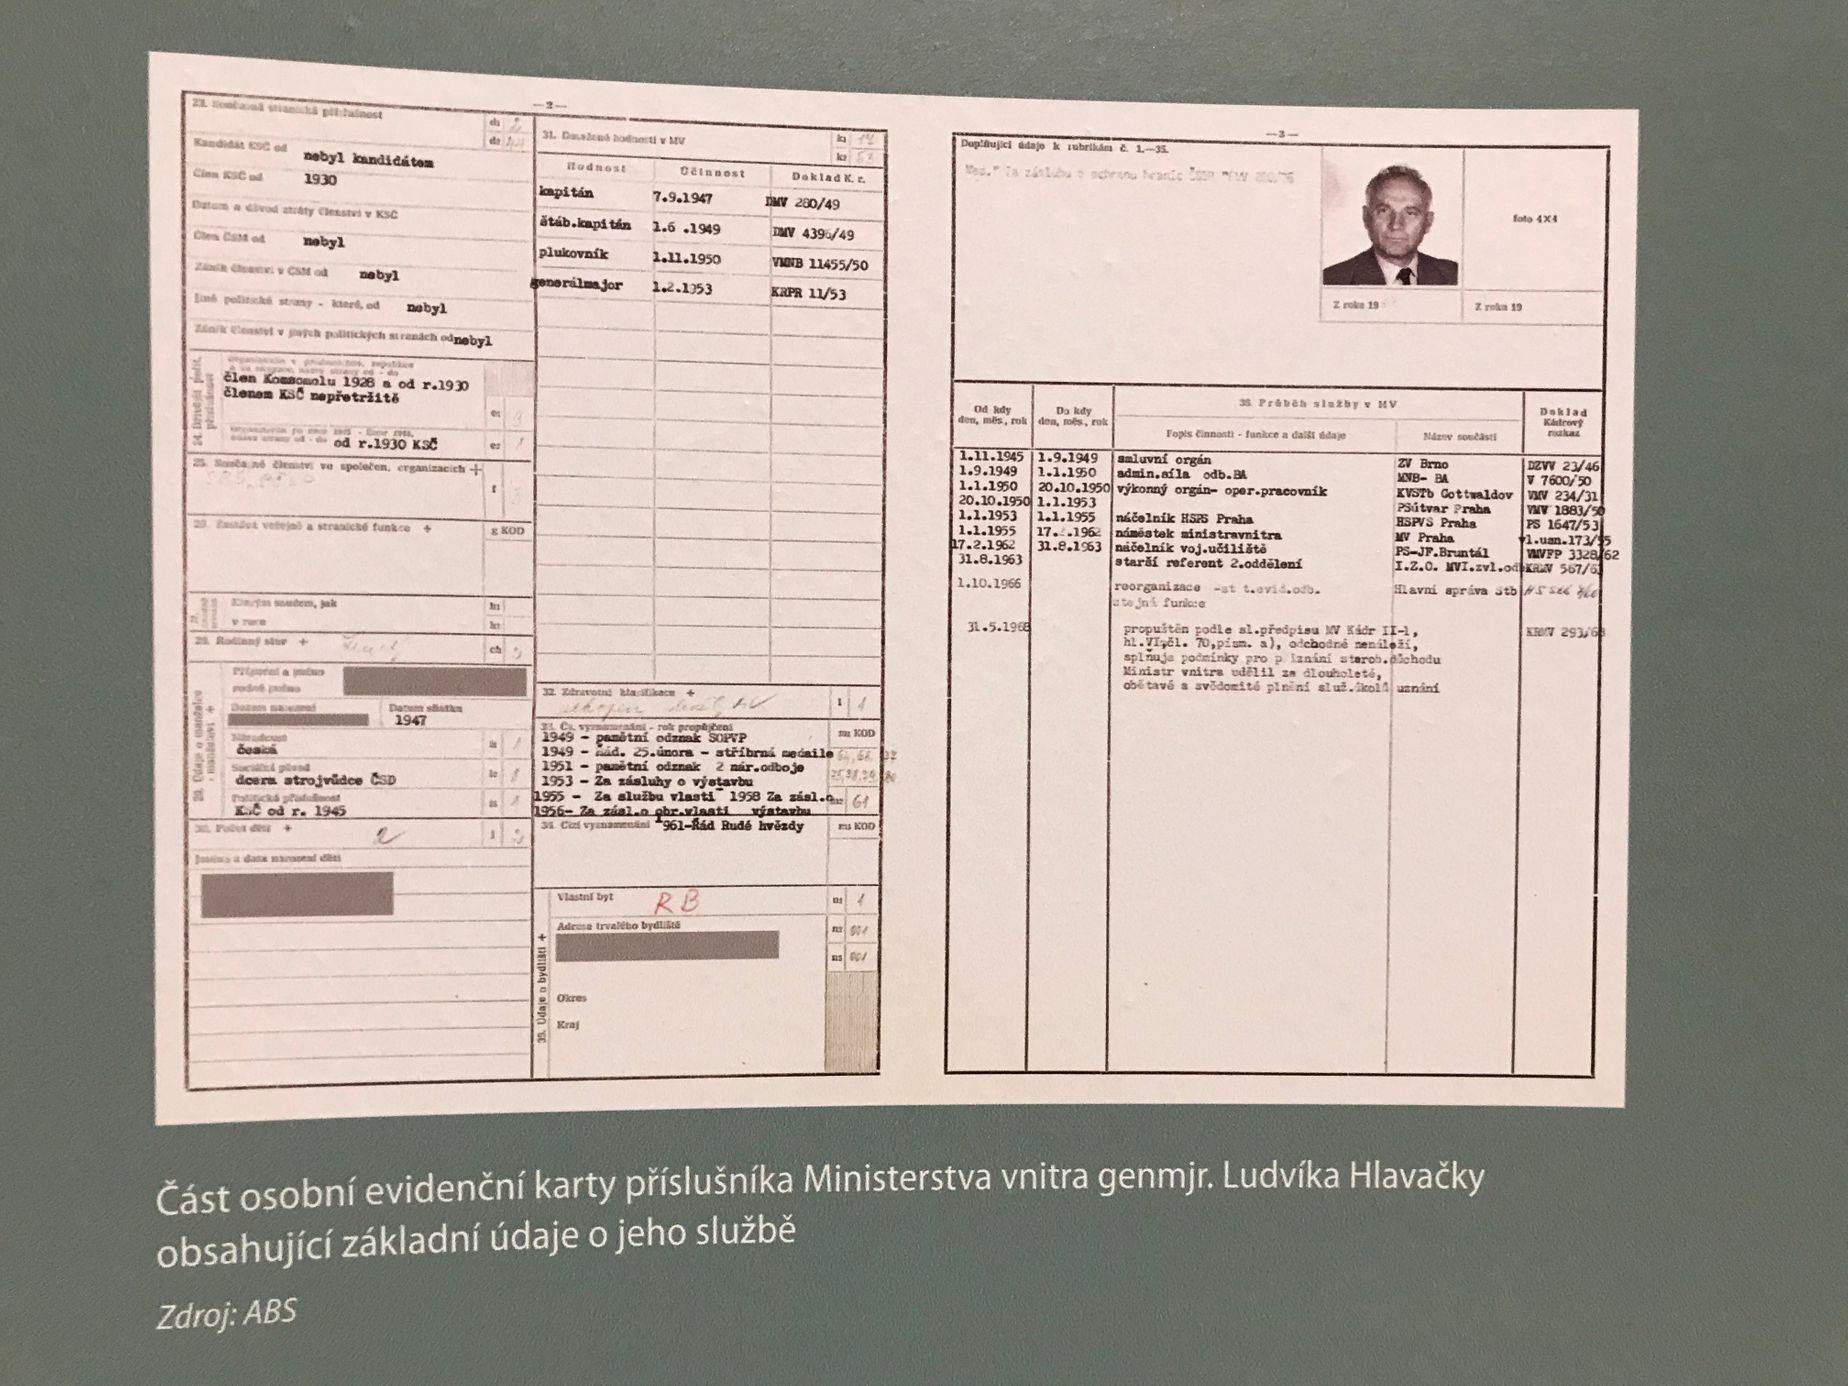 —2—
23. Současná stranická příslušnost
Kandidát KSČ od nebyl kandidátem
Člen KSČ od 1930
Datum a důvod ztráty členství v KSČ
Člen ČSM od nebyl
Zánik členství v ČSM od nebyl
Jiné politické strany - které, od nebyl
Zánik členství v jiných politických stranách od nebyl
člen Komsomolu 1928 a od r.1930
členem KSČ nepřetržitě
od r.1930 KSČ
25. Současné členství ve společen. organizacích +
veřejné a stranické funkce +
g KOD
Kterým soudem, jak
v roce
29. Rodinný stav +
ch
Příjmení a jméno
rodné jméno
Datum narození
Datum sňatku
1947
Národnost
česká
Sociální původ
dcera strojvůdce ČSD
Politická příslušnost
KSČ od r. 1945
30. Počet dětí + 2
Jména a data narození dětí
31. Dosažené hodnosti v MV
Hodnost Účinnost Doklad K. r.
kapitán 7.9.1947 DMV 280/49
štáb.kapitán 1.6 .1949 DMV 4396/49
plukovník 1.11.1950 VMNB 11455/50
generálmajor 1.2.1953 KRPR 11/53
32. Zdravotní klasifikace +
33. Čs. vyznamenání - rok propůjčení
KOD
1949 - pamětní odznak SOPVP
1949 - Řád. 25.února - stříbrná medaile
1951 - pamětní odznak 2 nár.odboje
1953 - Za zásluhy o výstavbu
1955 - Za službu vlasti 1958 Za zásl.o
1956- Za zásl.o obr.vlasti výstavbu
61
34. Cizí vyznamenání 1961-Řád Rudé hvězdy
KOD
35. Údaje o bydlišti +
Vlastní byt RB
Adresa trvalého bydliště
001
001
Okres
Kraj
—3—
Doplňující údaje k rubrikám č. 1.—35.
Med." Za zásluhu o ochranu hranic ČSSR
foto 4X4
Z roku 19
Z roku 19
36. Průběh služby v MV
Od kdy
den, měs., rok
Do kdy
den, měs., rok
Popis činnosti - funkce a další údaje
Název součásti
Doklad
Kádrový
rozkaz
1.11.1945 1.9.1949 smluvní orgán ZV Brno DZVV 23/46
1.9.1949 1.1.1950 admin.síla odb.BA MNB- BA V 7600/50
1.1.1950 20.10.1950 výkonný orgán- oper.pracovník KVSTb Gottwaldov VMV 234/31
20.10.1950 1.1.1953 PSútvar Praha VMV 1883/50
1.1.1953 1.1.1955 náčelník HSPS Praha HSPVS Praha PS 1647/53
1.1.1955 17.2.1962 náměstek ministravnitra MV Praha 1.usn.173/55
17.2.1962 31.8.1963 náčelník voj.učiliště PS-JF.Bruntál VMVFP 3328/62
31.8.1963 starší referent 2.oddělení I.Z.O. MVI.zvl.od KRMV 567/63
1.10.1966 reorganizace -st t.evid.odb. Hlavní správa Stb
stejná funkce
31.5.1968 propuštěn podle sl.předpisu MV Kádr II-1, KRMV 293/68
hl.VI,čl. 70,písm. a), odchodné nenáleží,
splňuje podmínky pro p iznání starob.důchodu
Ministr vnitra udělil za dlouholeté,
obětavé a svědomité plnění služ.úkolů uznání
Část osobní evidenční karty příslušníka Ministerstva vnitra genmjr. Ludvíka Hlavačky
obsahující základní údaje o jeho službě
Zdroj: ABS